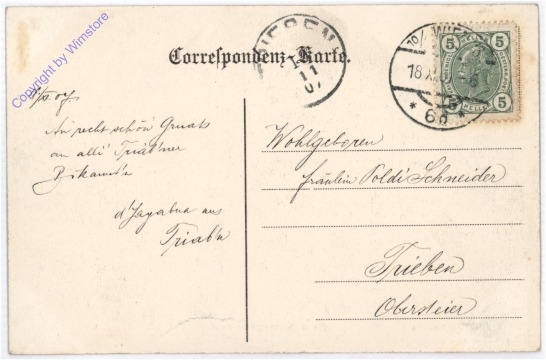 Copyright by Wimstore
Correspondenz-Karte.
TRIEBEN
11
07
10/1 WIEN
18 XI 07
* 6d *
5 5
5 5
An recht schön Gruaß
an alli Triab'ner
d'Jagabua aus
Triab'n
Wohlgeboren
Fräulein Poldi Schneider
Trieben
Obersteier